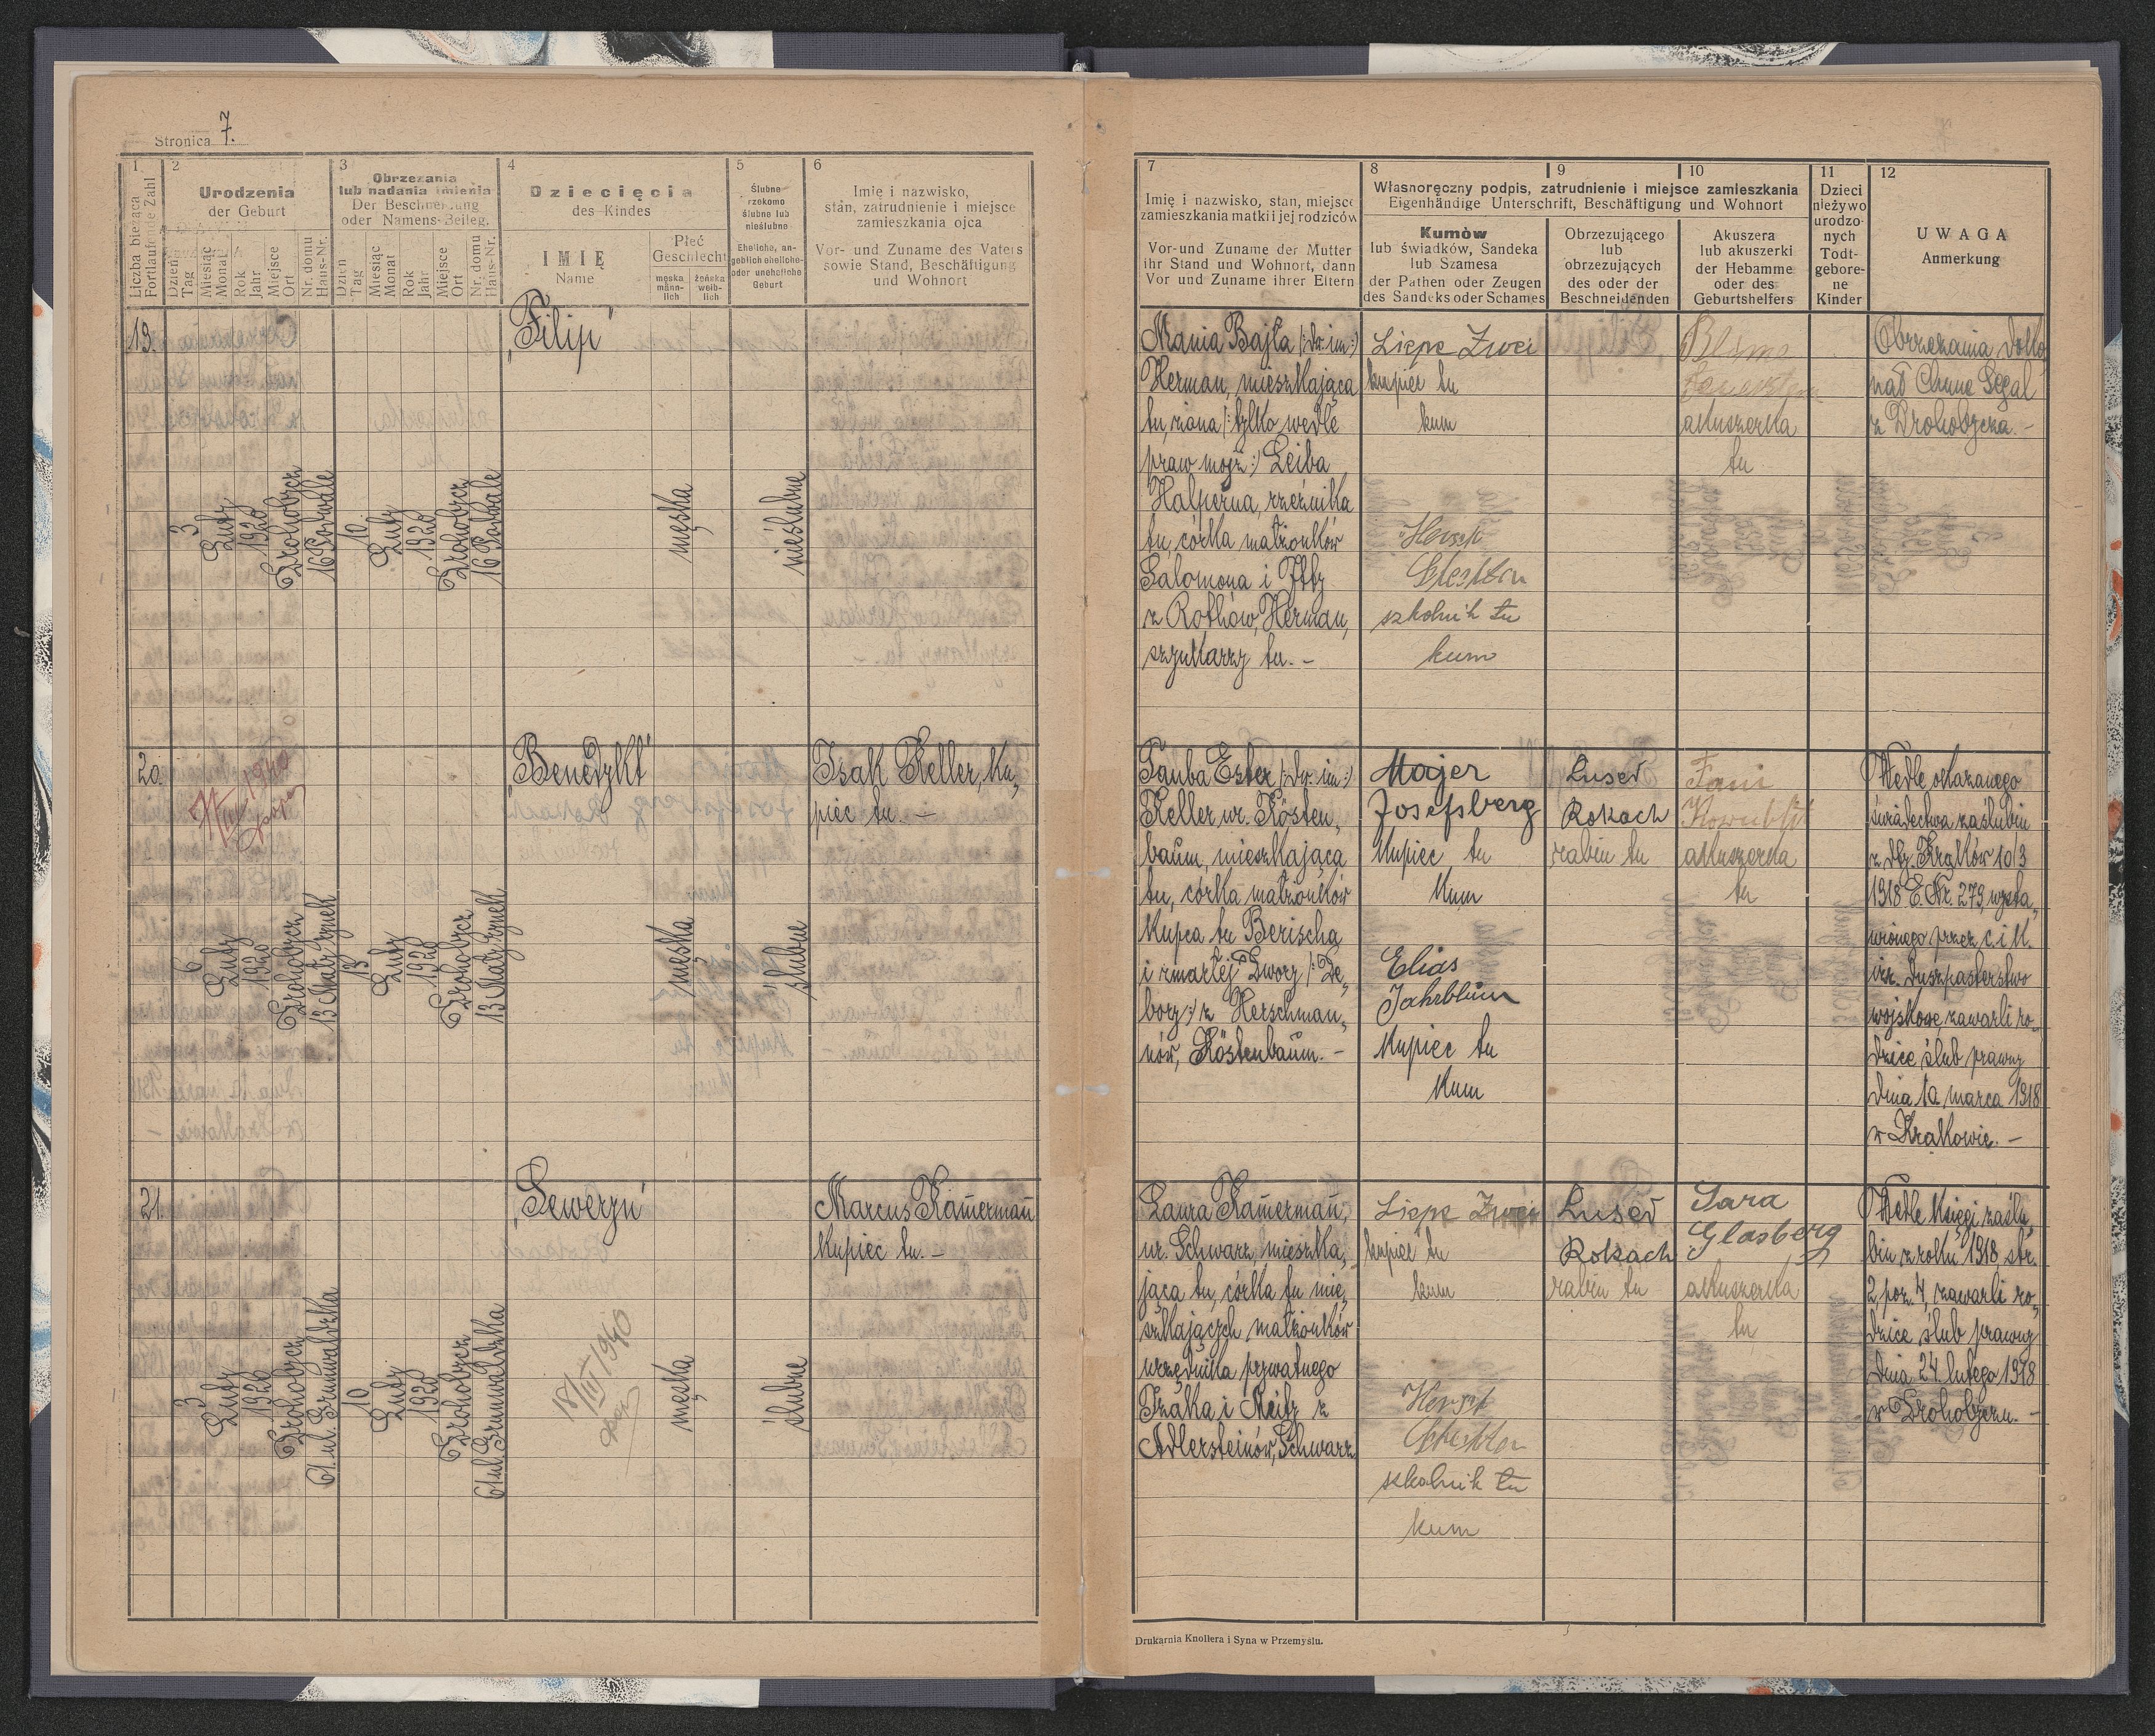 Stronica 7.
1
Liczba bieżąca
Fortlaufende Zahl
2
Urodzenia
der Geburt
Dzień
Tag
Miesiąc
Monat
Rok
Jahr
Miejsce
Ort
Nr. domu
Haus-Nr.
3
Obrzezania
lub nadania imienia
Der Beschneidung
oder Namens-Beileg.
Dzień
Tag
Miesiąc
Monat
Rok
Jahr
Miejsce
Ort
Nr. domu
Haus-Nr.
4
Dziecięcia
des Kindes
IMIĘ
Name
Płeć
Geschlecht
męska
männ-
lich
żeńska
weib-
lich
5
Ślubne
rzekomo
ślubne lub
nieślubne
Eheliche, an-
geblich eheliche-
oder uneheliche
Geburt
6
Imię i nazwisko,
stan, zatrudnienie i miejsce
zamieszkania ojca
Vor- und Zuname des Vaters
sowie Stand, Beschäftigung
und Wohnort
7
Imię i nazwisko, stan, miejsce
zamieszkania matki i jej rodziców
Vor-und Zuname der Mutter
ihr Stand und Wohnort, dann
Vor und Zuname ihrer Eltern
8
9
10
Własnoręczny podpis, zatrudnienie i miejsce zamieszkania
Eigenhändige Unterschrift, Beschäftigung und Wohnort
Kumów
lub świadków, Sandeka
lub Szamesa
der Pathen oder Zeugen
des Sandeks oder Schames
Obrzezującego
lub
obrzezujących
des oder der
Beschneidenden
Akuszera
lub akuszerki
der Hebamme
oder des
Geburtshelfers
11
Dzieci
nieżywo
urodzo-
nych
Todt-
gebore-
ne
Kinder
12
UWAGA
Anmerkung
19.
3
Luty
1920
Drohobycz
16 Podwale
10
Luty
1920
Drohobycz
16 Podwale
„Filip"
męska
nieślubne
Mania Bajla /:dw. im:/
Herman, mieszkająca
tu, żona /: tylko wedle
praw mojż:/ Leiba
Halperna, rzeźnika
tu, córka małżonków
Salomona i Itty
z Rothów, Herman,
szynkarzy tu. –
Lippe Zwei
kupiec tu
kum
Hersch
szkolnik tu
kum
akuszerka
tu
Obrzezania doko
nał Chune Segal
z Drohobycza. –
20.
6
Luty
1920
Drohobycz
13 Mały Rynek
13
Luty
1920
Drohobycz
13 Mały Rynek
„Benedykt"
męska
ślubne
Izak Keller, ku„
piec tu. –
Tauba Ester /:dw. im:/
Keller ur. Kösten„
baum, mieszkająca
tu, córka małżonków
kupca tu Berischa
i zmarłej Dwory /: De„
bory:/ z Herschman„
nów, Köstenbaum. –
Majer
Josefsberg
kupiec tu
kum
Elias
Jahrblum
kupiec tu
kum
Luser
Rokach
rabin tu
Fani
akuszerka
tu
Wedle okazanego
świadectwa zaślubin
z dty. Kraków 10/3
1918 E. Nr. 279, wysta„
wionego przez c. i k.
izr. duszpasterstwo
wojskowe, zawarli ro„
dzice ślub prawny
dnia 10. marca 1918
w Krakowie. –
21.
3
Luty
1920
Drohobycz
61. ul. Grunwaldzka
10
Luty
1920
Drohobycz
61 ul. Grunwaldzka
„Seweryn"
18/III 1940
męska
ślubne
Marcus Kamerman
kupiec tu. –
Laura Kamerman,
ur. Schwarz, mieszka„
jąca tu, córka tu mie„
szkających małżonków
urzędnika prywatnego
Izaka i Reizy z
Adlersteinów, Schwarz
Lippe Zwei
kupiec tu
kum
Hersch
szkolnik tu
kum
Luser
Rokach
rabin tu
Sara
Glasberg
akuszerka
tu
Wedle księgi zaślu„
bin z roku 1918, str.
2, poz. 4, zawarli ro„
dzice ślub prawny
dnia 24. lutego 1918
w Drohobyczu. –
Drukarnia Knollera i Syna w Przemyślu.